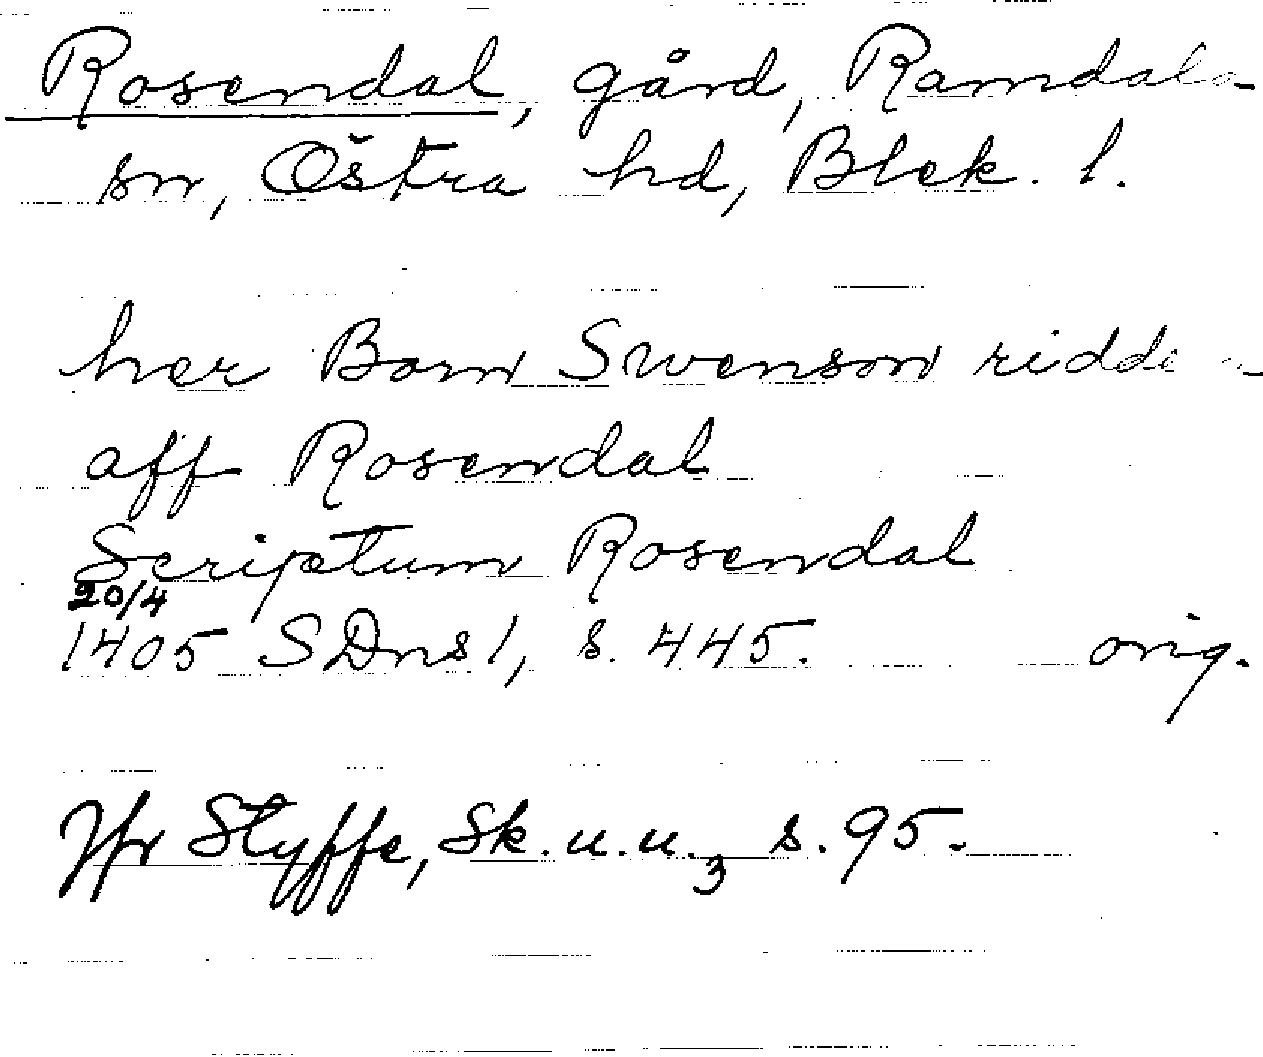 Rosendal, gård, Ramdala
sn, Östra hd, Blek. l.
her Bom Swenson ridde
aff Rosendal
Scriptum Rosendal
20/4
1405 SDns1, s. 445. orig.
Jfr Styffe, Sk.u.u.3 s. 95.